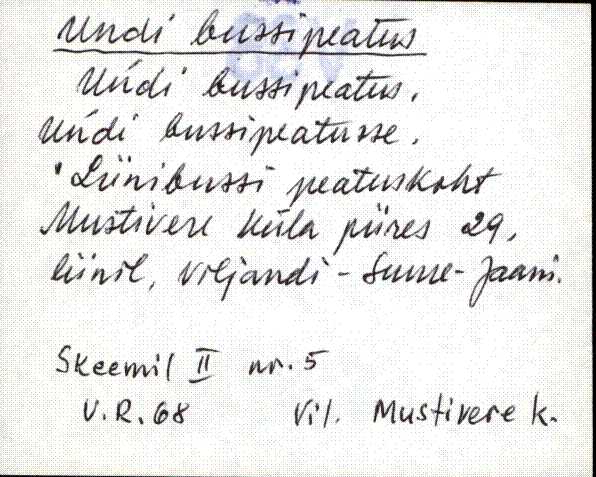 Undi bussipeatus
Uńdi bussipeatus.
Uńdi bussipeatusse.
Liinibussi peatuskoht
Mustivere küla piires 29,
liinil, Viljandi - Suure-Jaani.
Skeemil II nr. 5
V.R. 68 Vil. Mustivere k.